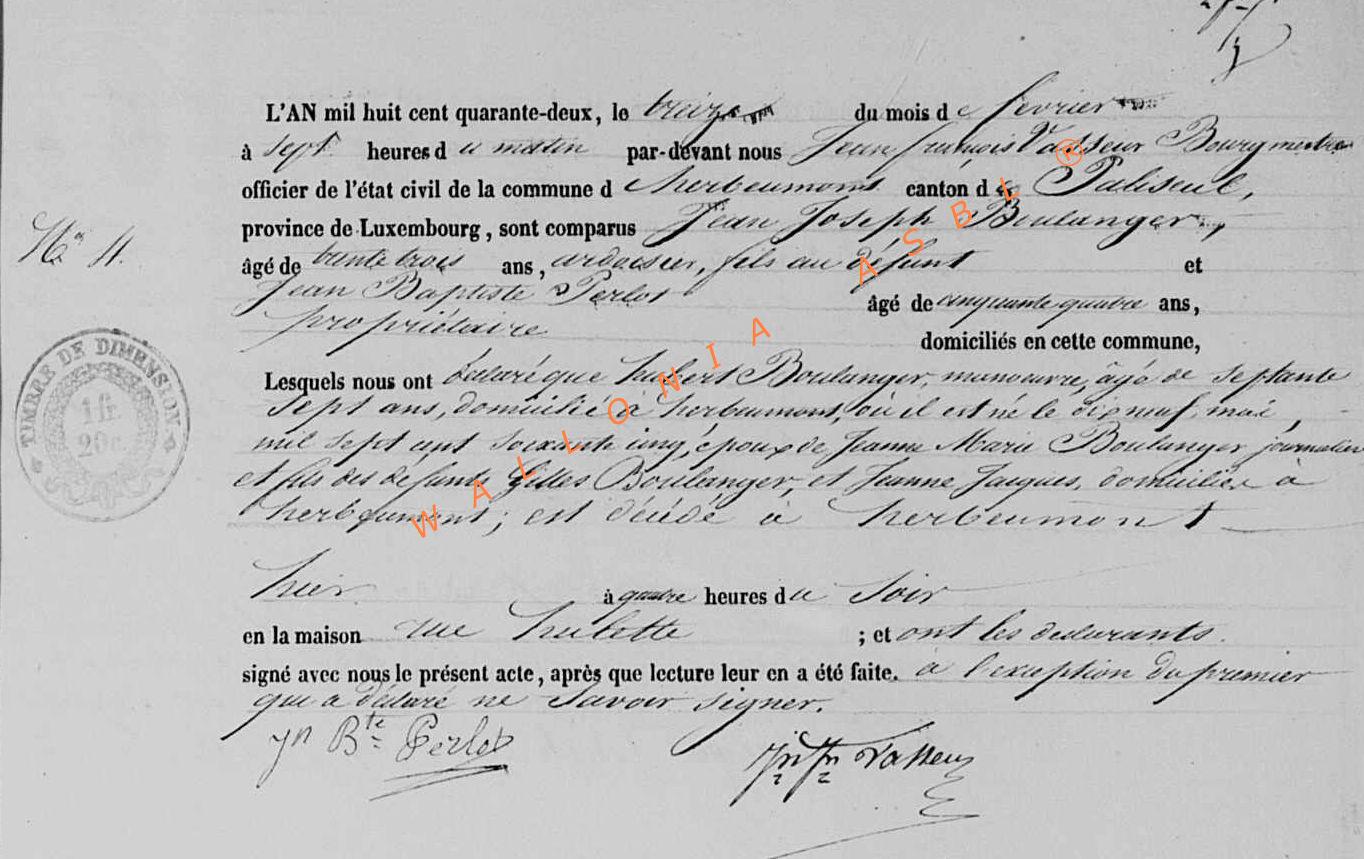 L'AN mil huit cent quarante-deux, le treize du mois de fevrier
à sept heures du matin par-dévant nous Jean françois Vasseur Bourgmestre
officier de l'état civil de la commune d herbeumont canton de Paliseul,
province de Luxembourg, sont comparus Jean Joseph Boulanger,
âgé de trente trois ans, ardoisier, fils au défunt et
Jean Baptiste Perlot âgé de cinquante quatre ans,
propriétaire domiciliés en cette commune,
N° 4.
TIMBRE DE DIMENSION
1 fr.
20 c.
Lesquels nous ont déclaré que hubert Boulanger, manœuvre, âgé de septante
sept ans, domicilié à herbeumont, où il est né le dix neuf mai
mil sept cent soixante cinq, époux de Jeanne Marie Boulanger journalier
et fils des défunts Gilles Boulanger, et Jeanne Jacques, domiciliés à
herbeumont; est décédé à herbeumont
hier à quatre heures du soir
en la maison rue hulette ; et ont les déclarants
signé avec nous le présent acte, après que lecture leur en a été faite. à l'exception du premier
qui a déclaré ne savoir signer.
Jn Bte Perlot
Jn Fn Vasseur
WALLONIA ASBL ®